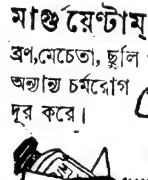 মার্গু য়েণ্টাম্
ব্রণ,মেচেতা, ছুলি
অন্যান্য চর্মরোগ
দূর করে।